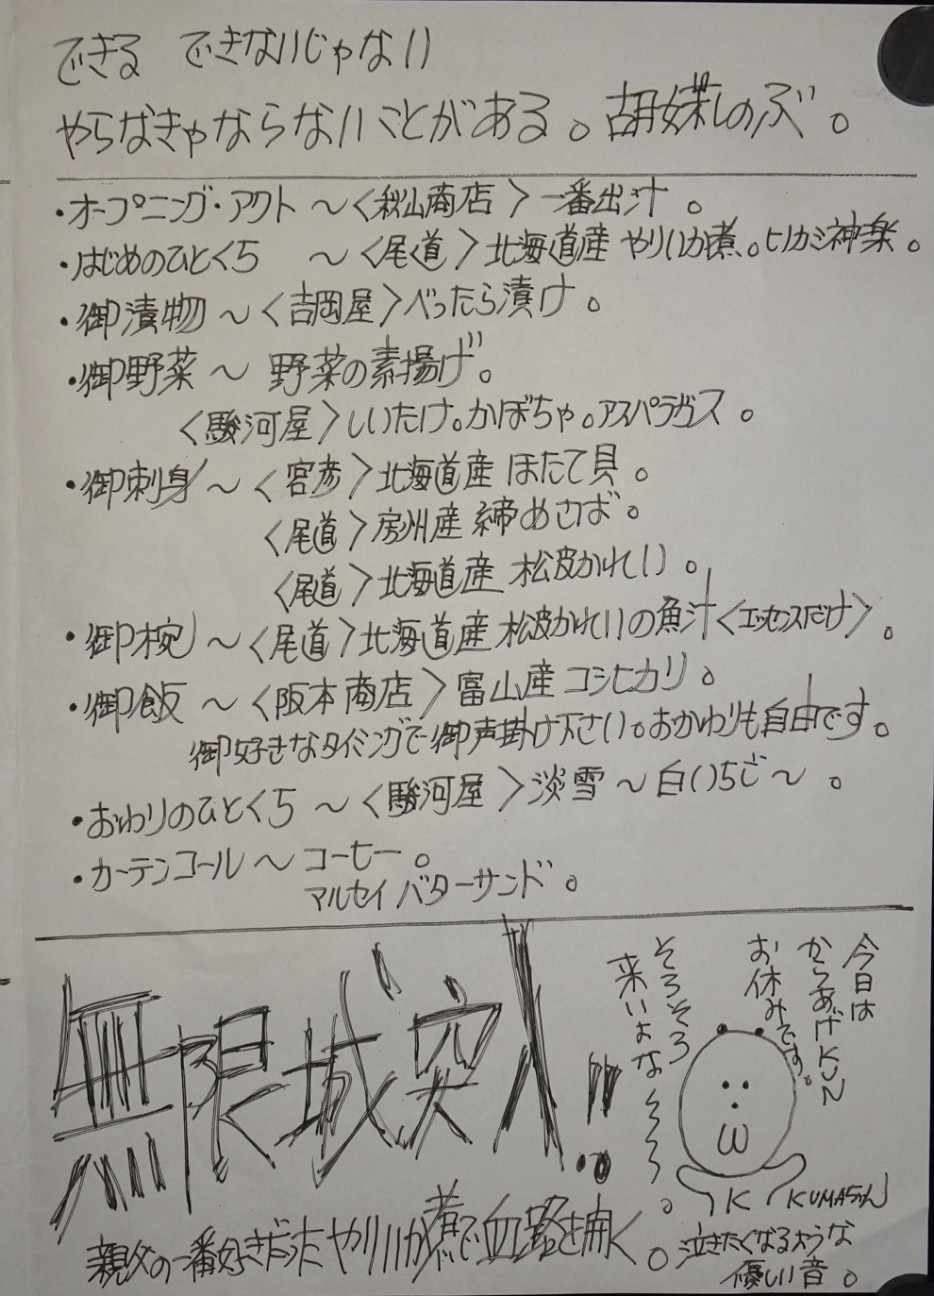 できる できないじゃない
やらなきゃならないことがある。胡蝶しのぶ。
・オープニング・アクト 〜〈秋山商店〉一番出汁。
・はじめのひとくち 〜〈尾道〉北海道産 やりいか煮。ヒノカミ神楽。
・御漬物〜〈吉岡屋〉べったら漬け。
・御野菜〜 野菜の素揚げ。
〈駿河屋〉しいたけ。かぼちゃ。アスパラガス。
・御刺身〜〈宮彦〉北海道産 ほたて貝。
〈尾道〉房州産 締めさば。
〈尾道〉北海道産 松皮かれい。
・御椀〜〈尾道〉北海道産 松皮かれいの魚汁〈エッセンスだけ〉。
・御飯〜〈阪本商店〉富山産コシヒカリ。
御好きなタイミングで御声掛け下さい。おかわりも自由です。
・おわりのひとくち〜〈駿河屋〉淡雪〜白いちご〜。
・カーテンコール〜 コーヒー。
マルセイ バターサンド。
無限城突入!!
親父の一番好きだったやりいか煮で血路を開く。
今日は
からあげKUN
お休みです。
そろそろ
来いよな〜〜。
K KUMAちゃん
泣きたくなるような
優しい音。